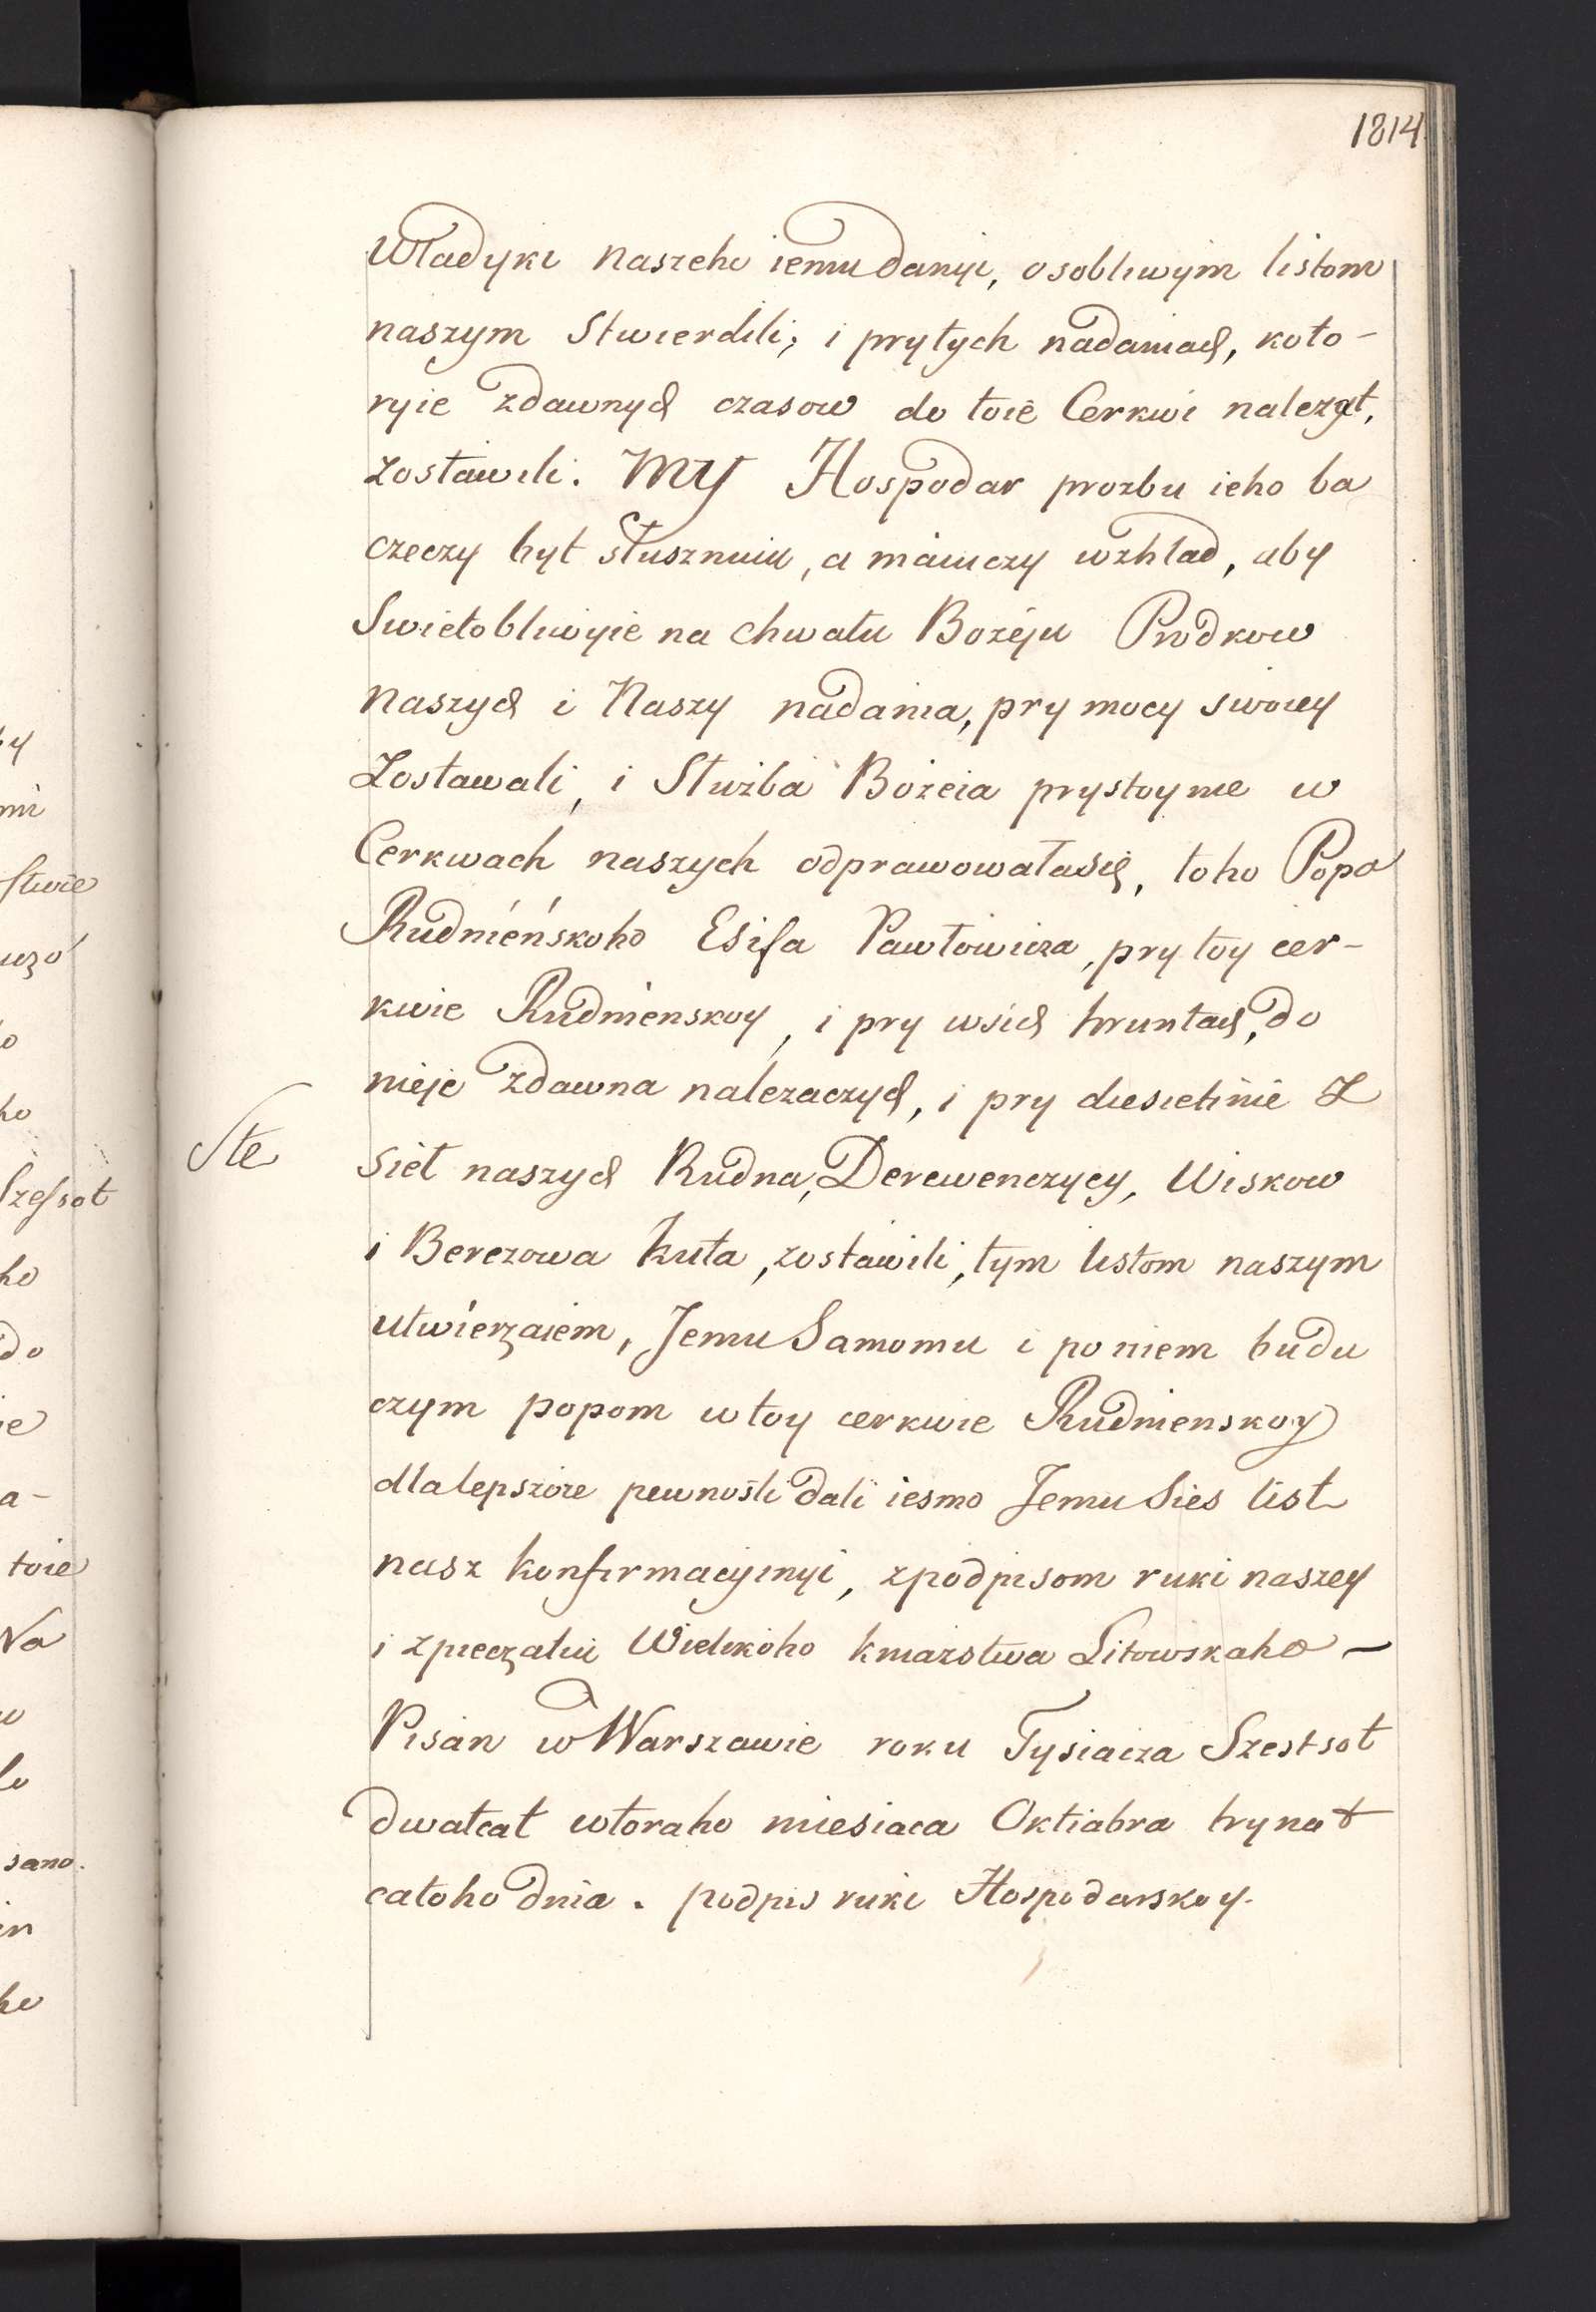 1814
Władyki naszeho iemu danyi, osobliwym listom
naszym stwierdili; i prytych nadaniach, koto-
ryie zdawnych czasow do toiê Cerkwi nalezat,
zostawili. My Hospodar prozbu ieho ba
czeczy byt słusznuiu, a maiuczy wzhlad, aby
Swietobliwyie na chwału Bozéju Prodkow
naszych i Naszy nadania, pry mocy swoiey
Zostawali, i Służba Bożeia prystoynie w
Cerkwach naszych odprawowałasię, toho Popa
Rudnieńskoho Esifa Pawłowicza, pry toy cer-
kwie Rudnienskoy, i pry wsich hruntach, do
nieje zdawna nalezaczych, i pry diesietinie Z
Ste
Sieł naszych Rudna, Derewenczycy, Wiskow
i Berezowa Kuta, zostawili, tym listom naszym
utwierzaiem, Jemu Samomu i po niem budu
czym popom w toy cerkwie Rudnienskoy
dla lepszoie pewnosti dali iesmo Jemu Sies list
nasz konfirmacyinyi, zpodpisom ruki naszey
i zpieczatiu Wielikoho kniazstwa Litowskaho –
Pisan w Warszawie roku Tysiacza Szest sot
dwatcat wtoraho miesiaca Oktiabra trynat
catoho dnia. podpis ruki Hospodarskoy.
stwie
ko
Szessot
ko
do
ie
a-
toie
Na
sano.
in
ho